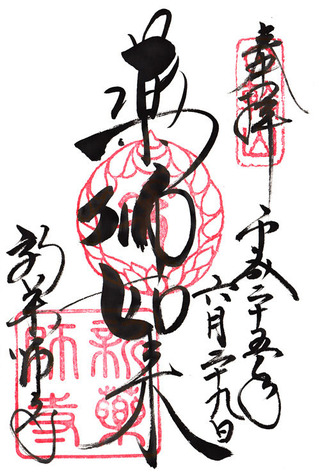 奉拝
平成二十五年
六月二十九日
薬師如来
新薬師寺
新薬
師寺